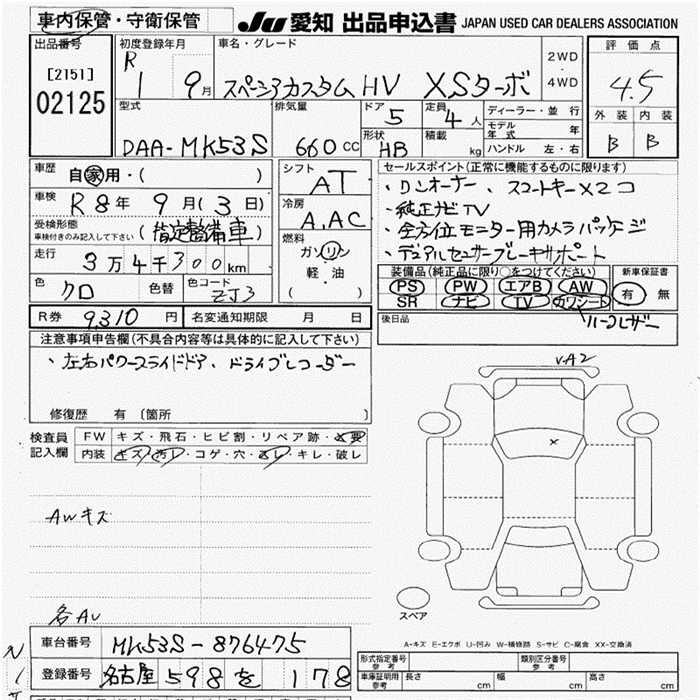 車内保管・守衛保管 JU 愛知 出品申込書 JAPAN USED CAR DEALERS ASSOCIATION
出品番号 [2151] 02125
初度登録年月 R 1 9月
車名・グレード スペーシアカスタム HV XSターボ
2WD 4WD
評価点 4.5
外装 内装
B B
型式 DAA-MK53S
排気量 660cc
ドア 5
定員 4人
形状 HB
積載 kg
ディーラー・並行
モデル年式 年
ハンドル 左・右
車歴 自家用・( )
車検 R8年 9月(3日)
受検形態 車検付きのみ記入して下さい (指定整備車)
走行 3万4千300km
色 クロ 色替 色コード ZJ3
シフト AT
冷房 A.AC
燃料 ガソリン 軽油 ( )
セールスポイント(正常に機能するものに限ります)
・ワンオーナー、スマートキーX2コ
・純正ナビTV
・全方位モニター用カメラパッケージ
・デュアルセンサーブレーキサポート
装備品(純正品に限り○をつけてください)
PS PW エアB AW
SR ナビ TV カワシート
新車保証書 有 無
ハーフレザー
後日品
R券 9310円 名変通知期限 月 日
注意事項申告欄(不具合内容等は具体的に記入して下さい)
・左右パワースライドドア、ドライブレコーダー
修復歴 有 〔箇所 〕
検査員記入欄
FW キズ・飛石・ヒビ割・リペア跡・X要
内装 キズ・汚レ・コゲ・穴・ヌレ・キレ・破レ
AWキズ
V.A2
X
スペア
A-キズ E-エクボ U-凹み W-補修跡 S-サビ C-腐食 XX-交換済
車台番号 MK53S-876475
登録番号 名古屋 598 を 178
形式指定番号 参考
類別区分番号 参考
車庫証明用 参考 長さ cm 幅 cm 高さ cm